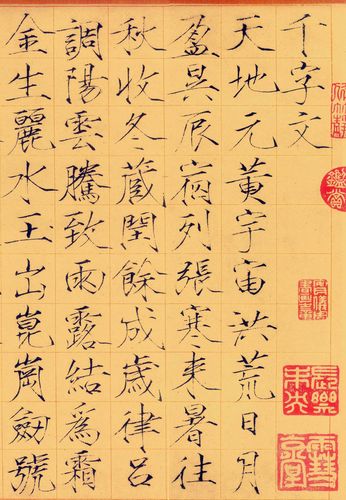 千字文
天地元黃宇宙洪荒日月
盈昃辰宿列張寒来暑往
秋收冬蔵閏餘成歲律呂
調陽雲騰致雨露結爲霜
金生麗水玉出崑崗劔號
鑑賞